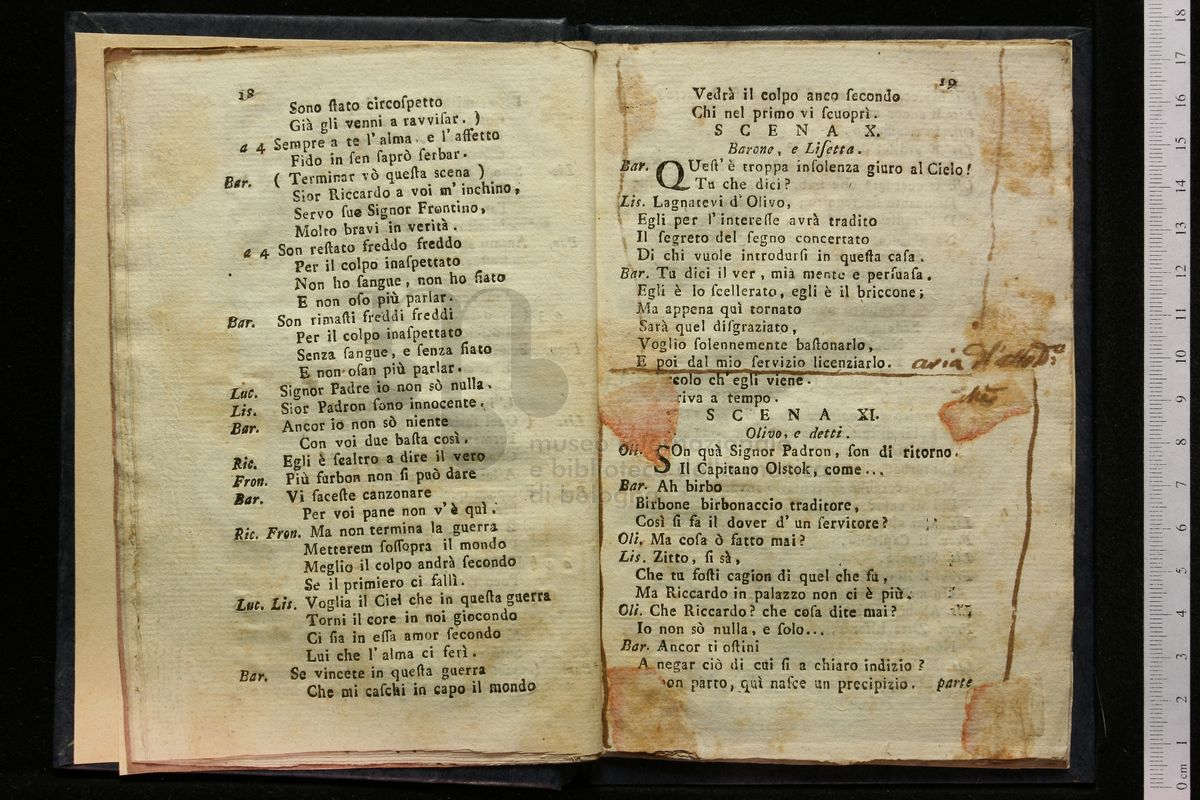 18
Sono ſtato circoſpetto
Già gli venni a ravviſar. )
a 4 Sempre a te l'alma e l'affetto
Fido in ſen ſaprò ſerbar.
Bar. ( Terminar vò queſta scena )
Sior Riccardo a voi m'inchino,
Servo ſue Signor Frontino,
Molto bravi in verità.
a 4 Son reſtato freddo freddo
Per il colpo inaſpettato
Non ho ſangue, non ho fiato
E non oſo più parlar.
Bar. Son rimaſti freddi freddi
Per il colpo inaſpettato
Senza ſangue, e ſenza fiato
E non oſan più parlar.
Luc. Signor Padre io non sò nulla.
Lis. Sior Padron ſono innocente.
Bar. Ancor io non sò niente
Con voi due baſta così.
Ric. Egli è ſcaltro a dire il vero
Fron. Più furbon non ſi può dare
Bar. Vi faceſte canzonare
Per voi pane non v'è quì.
Ric. Fron. Ma non termina la guerra
Metterem ſoſſopra il mondo
Meglio il colpo andrà ſecondo
Se il primiero ci fallì.
Luc. Lis. Voglia il Ciel che in queſta guerra
Torni il core in noi giocondo
Ci ſia in eſſa amor ſecondo
Lui che l'alma ci ferì.
Bar. Se vincete in queſta guerra
Che mi caſchi in capo il mondo
19
Vedrà il colpo anco ſecondo
Chi nel primo vi ſcuoprì.
SCENA X.
Barone, e Liſetta.
Bar. QUeſt'è troppa inſolenza giuro al Cielo!
Tu che dici?
Lis. Lagnatevi d'Olivo,
Egli per l'intereſſe avrà tradito
Il ſegreto del ſegno concertato
Di chi vuole introdurſi in queſta caſa.
Bar. Tu dici il ver, mia mente e perſuaſa.
Egli è lo ſcellerato, egli è il briccone;
Ma appena quì tornato
Sarà quel diſgraziato,
Voglio ſolennemente baſtonarlo,
E poi dal mio ſervizio licenziarlo. aria
colo ch'egli viene.
riva a tempo.
SCENA XI.
Olivo, e detti.
Oli. SOn quà Signor Padron, ſon di ritorno.
Il Capitano Olstok, come...
Bar. Ah birbo
Birbone birbonaccio traditore,
Così ſi fa il dover d'un ſervitore?
Oli. Ma coſa ò fatto mai?
Lis. Zitto, ſi sà,
Che tu foſti cagion di quel che fu,
Ma Riccardo in palazzo non ci è più.
Oli. Che Riccardo? che coſa dite mai?
Io non sò nulla, e ſolo...
Bar. Ancor ti oſtini
A negar ciò di cui ſi a chiaro indizio?
on parto, quì naſce un precipizio. parte
museo internazionale
e biblioteca
di bologna
0 cm 1 2 3 4 5 6 7 8 9 10 11 12 13 14 15 16 17 18